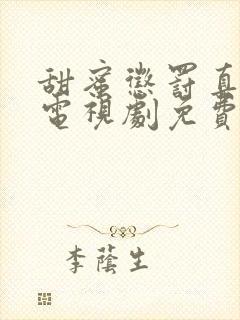 甜蜜懲罰真
電視劇免費
李蔭生